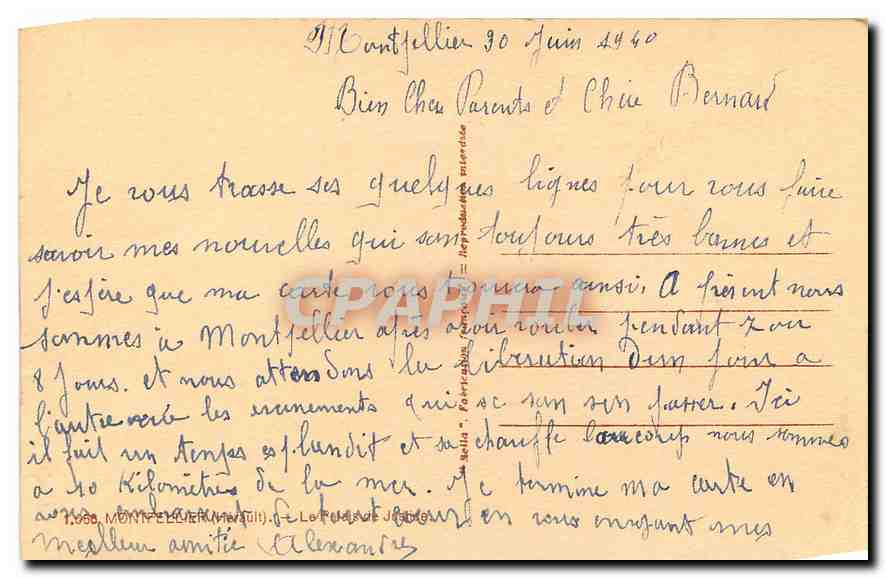 Montpellier 30 Juin 1940
Bien Cher Parents et Chère Bernard
Je vous trasse ses quelques lignes pour vous faire
savoir mes nouvelles qui son toujours très bonnes et
j'espère que ma carte vous trouvera ainsi. A présent nous
sommes à Montpellier après avoir rouler pendant 7 ou
8 Jours. et nous attendons la libération Dun jour a
l'autre les évènements qui se son sen passer. Ici
il fait un temps esplandit et sa chauffe beaucoup nous sommes
a 10 Kilomètres de la mer. Je termine ma carte en
vous embrassant de tout cœur en vous envoyant mes
meilleur amitié Alexandre
1.058. MONTPELLIER (Hérault). — Le Palais de Justice
"La Bella". Fabrication Française = Reproduction interdite
CPAPHIL